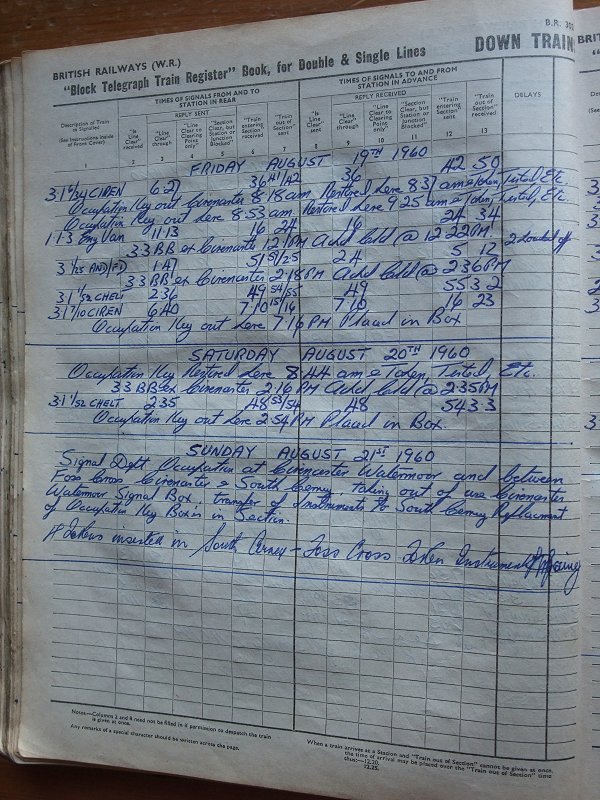 B.R. 30
BRITISH RAILWAYS (W.R.)
DOWN TRAIN
"Block Telegraph Train Register" Book, for Double & Single Lines
TIMES OF SIGNALS FROM AND TO STATION IN REAR
TIMES OF SIGNALS TO AND FROM STATION IN ADVANCE
REPLY SENT
REPLY RECEIVED
DELAYS
Description of Train as Signalled
(See Instructions inside of Front Cover)
"Is Line Clear" received
"Line Clear" through
"Line Clear to Clearing Point only"
"Section Clear, but Station or Junction Blocked"
"Train entering Section" received
"Train out of Section" sent
"Is Line Clear" sent
"Line Clear" through
"Line Clear to Clearing Point only"
"Section Clear, but Station or Junction Blocked"
"Train entering Section" sent
"Train out of Section" received
1 2 3 4 5 6 7 8 9 10 11 12 13
FRIDAY AUGUST 19TH 1960
CIREN 6.27 36 41/42 36 42 50
Occupation Key out Cirencester 8.18am Restored here 8.37 am & Token, Tested, Etc.
Occupation Key out here 8.53am Restored here 9.25 am & Token, Tested, Etc.
1-1-3 Eng Van 11.13 16 24 16 24 34
33 BB ex Cirencester 12.1 PM Ackd Calld @ 12.22 PM
1.47 51 24 5 12
33 BB ex Cirencester 2.18 PM Ackd Calld @ 2.36 PM
CHELT 2.36 49 54/55 49 55 3 2
CIREN 6.40 7.10 15/16 7.10 16 23
Occupation Key out here 7.16 PM Placed in Box
SATURDAY AUGUST 20TH 1960
Occupation Key Restored here 8.44 am & Token, Tested, Etc.
33 BB ex Cirencester 2.16 PM Ackd Calld @ 2.35 PM
CHELT 2.35 48 53/54 48 54 3 3
Occupation Key out here 2.54 PM Placed in Box.
SUNDAY AUGUST 21ST 1960
Signal Dept Occupation at Cirencester Watermoor and between
Foss Cross Cirencester & South Cerney, taking out of use Cirencester
Watermoor Signal Box, transfer of Instruments to South Cerney Replacement
of Occupation Key Boxes in Section.
Tokens inserted in South Cerney - Foss Cross Token Instrument
Notes—Columns 2 and 8 need not be filled in if permission to despatch the train is given at once.
Any remarks of a special character should be written across the page.
When a train arrives at a Station and "Train out of Section" cannot be given at once, the time of arrival may be placed over the "Train out of Section" time thus:—12.20. 12.25.